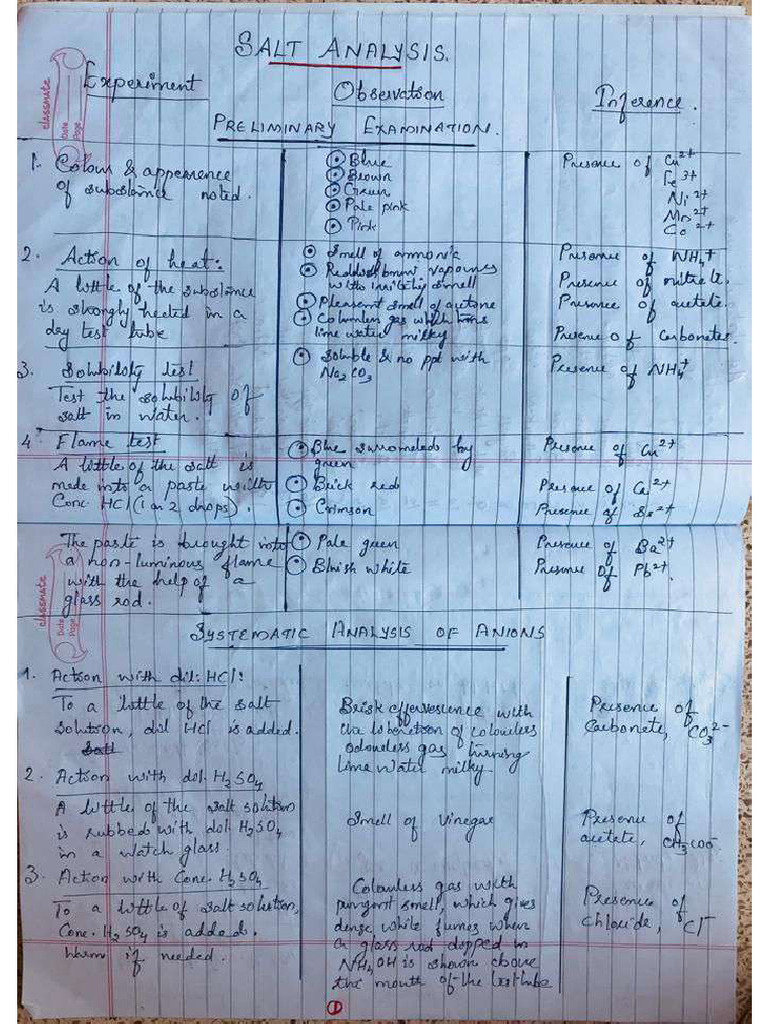 SALT ANALYSIS.
classmate
Date
Page
Experiment
Observation
Inference.
PRELIMINARY EXAMINATION.
1. Colour & appearence
of substance noted.
Blue
Brown
Green
Pale pink
Pink
Presence of Cu2+
Fe3+
Ni2+
Mn2+
Co2+
2. Action of heat:
A little of the substance
is strongly heated in a
dry test tube
Smell of ammonia
Reddish brown vapours
with irritating smell
Pleasant smell of acetone
Colourless gas which turns
lime water milky
Presence of NH4+
Presence of nitrate.
Presence of acetate.
Presence of Carbonates.
3. Solubility test
Test the solubility of
salt in water.
Soluble & no ppt with
Na2CO3
Presence of NH4+
4. Flame test
A little of the salt is
made into a paste with
Conc HCl (1 or 2 drops).
Blue surrounded by
green
Brick red
Crimson
Presence of Cu2+
Presence of Ca2+
Presence of Sr2+
The paste is brought into
a non-luminous flame
with the help of a
glass rod.
Pale green
Bluish white
Presence of Ba2+
Presence Of Pb2+.
classmate
Date
Page
SYSTEMATIC ANALYSIS OF ANIONS
1. Action with dil. HCl:
To a little of the salt
solution, dil HCl is added.
Brisk effervescence with
the liberation of colourless
odourless gas turning
lime water milky
Presence of
Carbonate, CO3 2-
2. Action with dil. H2SO4
A little of the salt solution
is rubbed with dil. H2SO4
in a watch glass.
Smell of vinegar
Presence of
acetate, CH3COO-
3. Action with Conc. H2SO4
To a little of salt solution,
Conc. H2SO4 is added.
Warm if needed.
Colourless gas with
pungent smell, which gives
dense white fumes when
a glass rod dipped in
NH4OH is shown above
the mouth of the test tube
Presence of
Chloride, Cl-
1